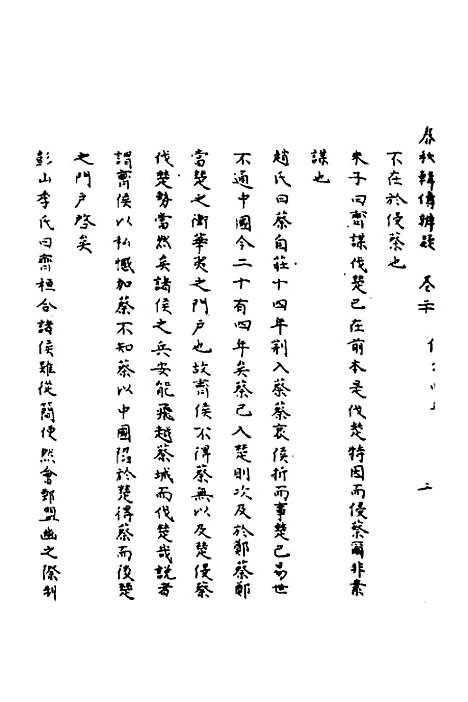 春秋輯傳辨疑 卷三十 二
不在於侵蔡也
朱子曰齊謀伐楚已在前本是伐楚特因而侵蔡爾非素
謀也
趙氏曰蔡自莊十四年荆入蔡蔡哀侯折而事楚已易世
不通中國今二十有四年矣蔡已入楚則次及於鄭蔡鄭
當楚之衝華夷之門户也故齊侯不得蔡無以及楚侵蔡
伐楚勢當然矣諸侯之兵安能飛越蔡城而伐楚哉説者
謂齊侯以私憾加蔡不知蔡以中國陷於楚得蔡而後楚
之門户啓矣
彭山李氏曰齊桓合諸侯雖從簡便然會鄄盟幽之際刑